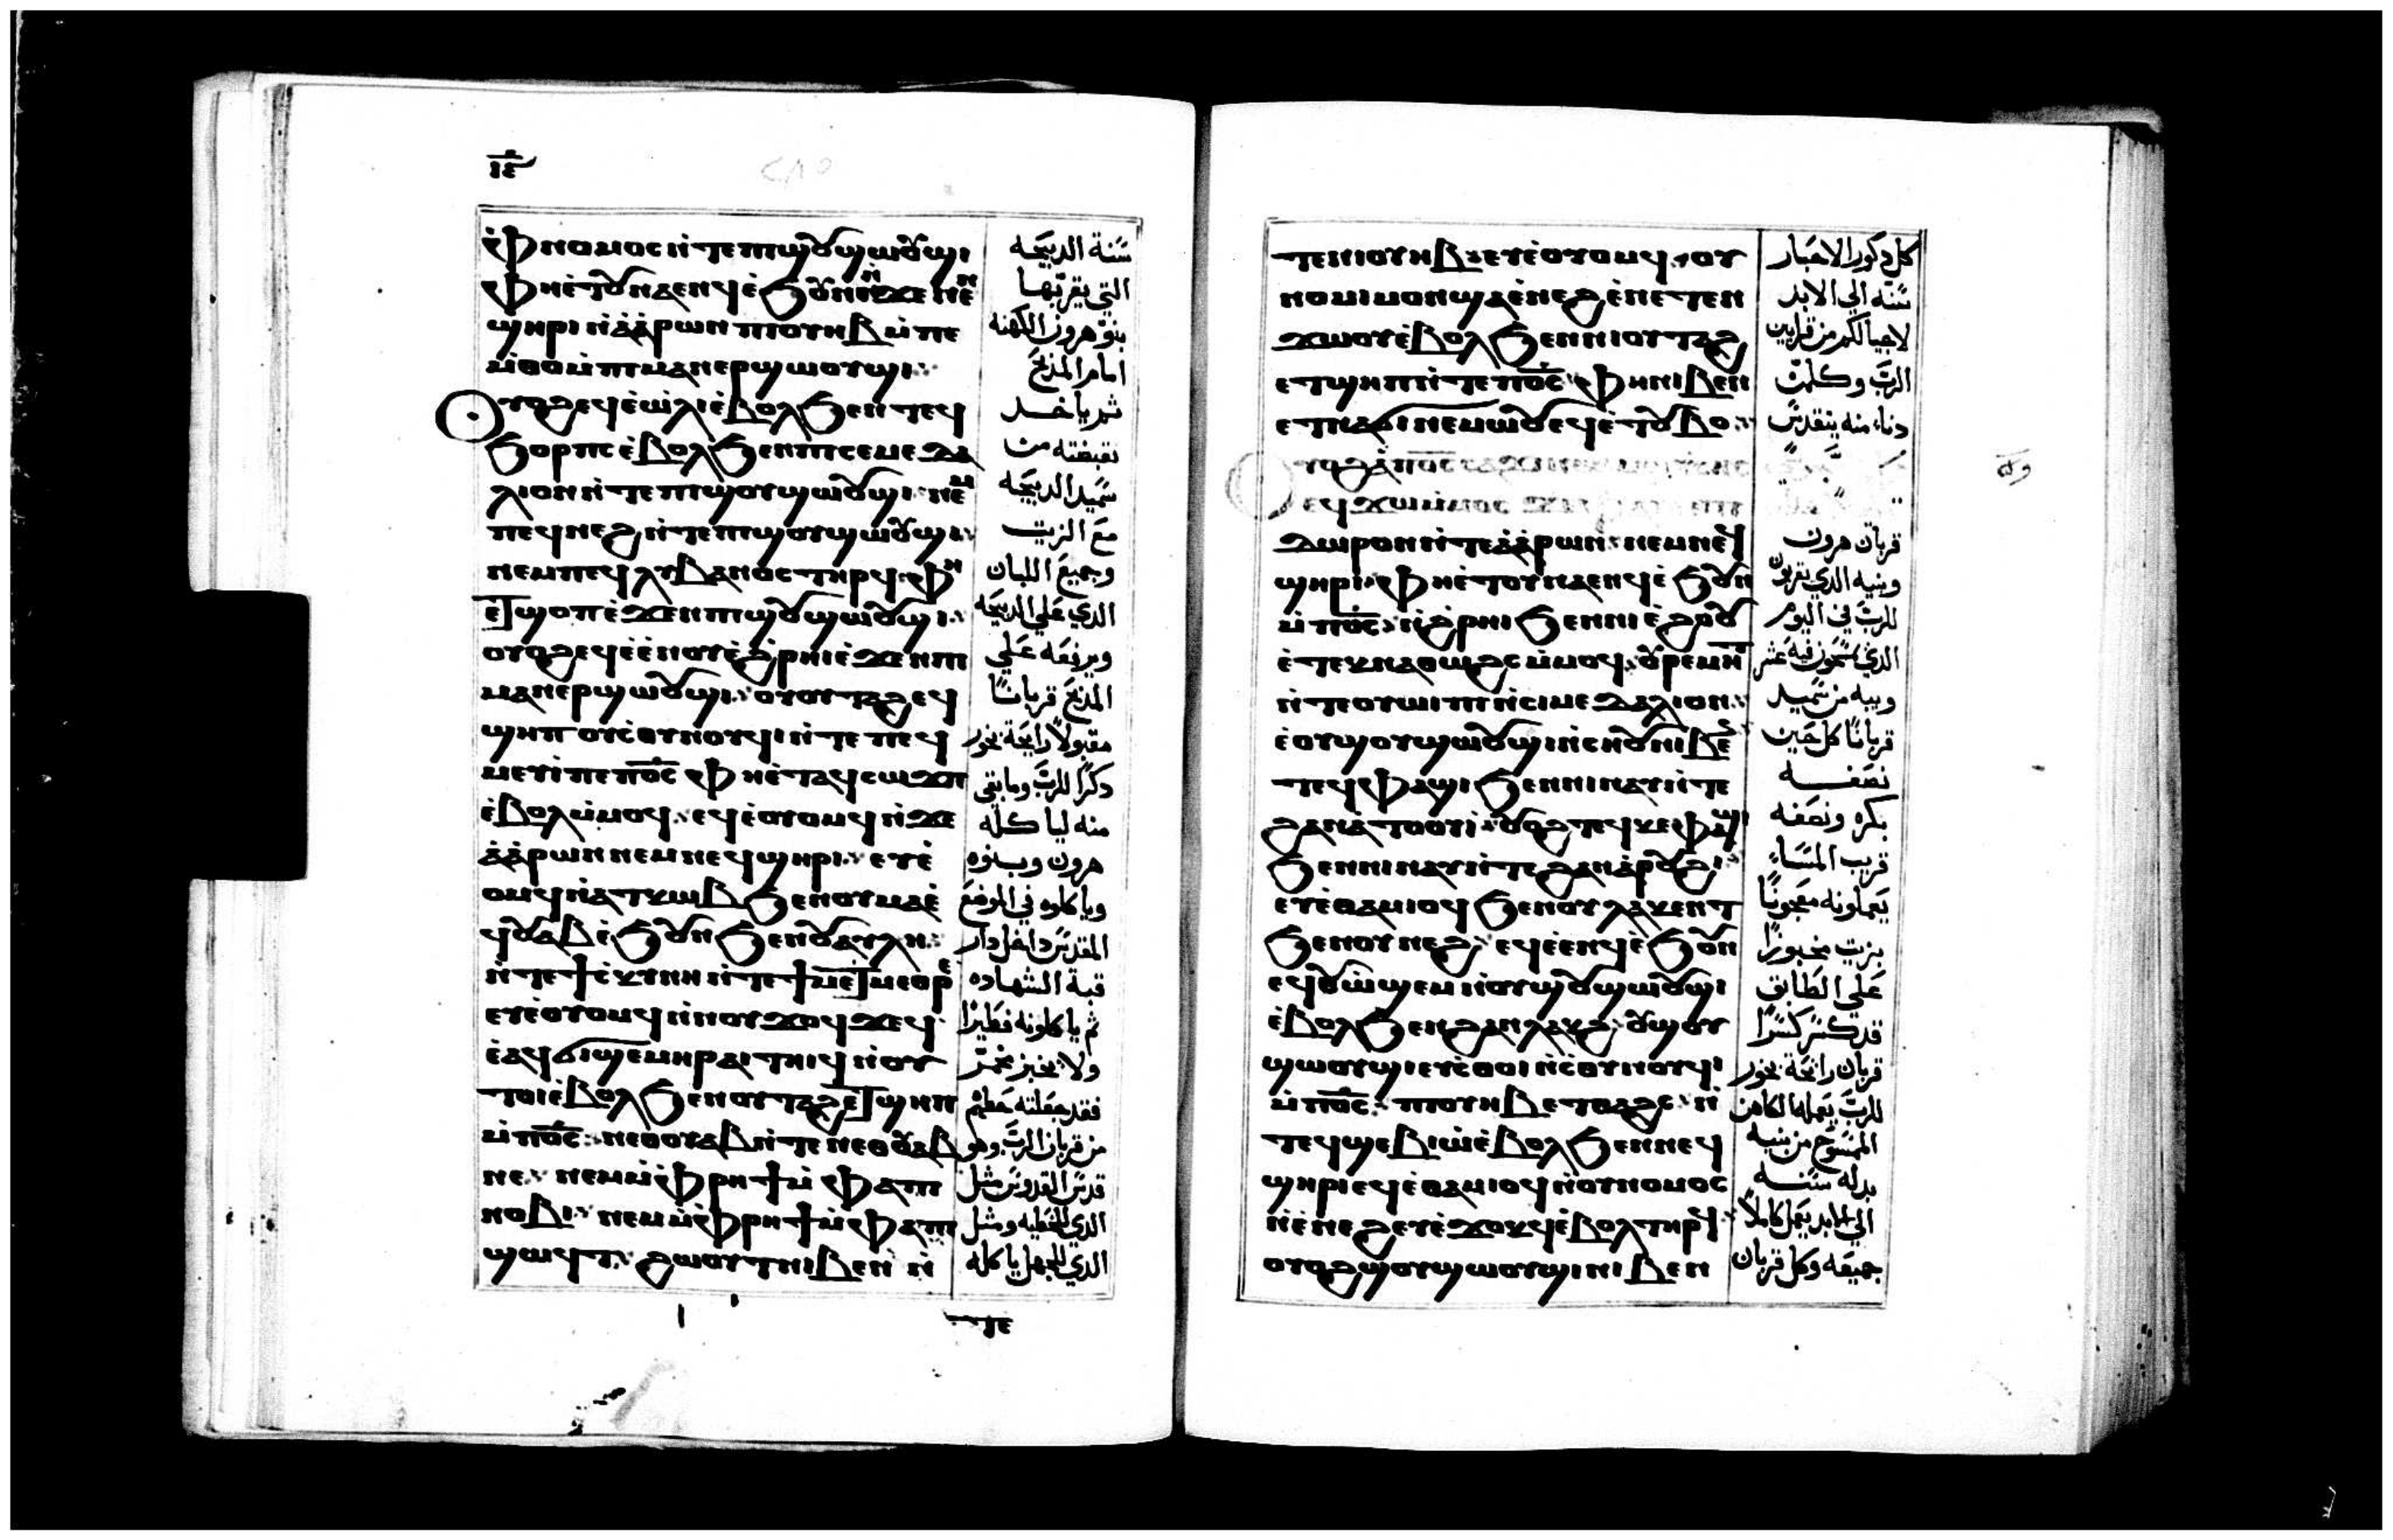 ⲓⲉ
ⲉ̀ⲫⲛⲟⲙⲟⲥ ⲛ̀ⲧⲉⲡⲓϣⲟⲩϣⲱⲟⲩϣⲓ
ⲫⲏⲉ̀ⲧⲟⲩⲛⲁⲉⲛϥ ⲉ̀ϧⲟⲩⲛ ⲛ̀ϫⲉⲛⲉⲛ
ϣⲏⲣⲓ ⲛ̀ⲁ̀ⲁ̀ⲣⲱⲛ ⲡⲓⲟⲩⲏⲃ ⲙ̀ⲡⲉ
ⲙ̀ⲑⲟ ⲙ̀ⲡⲓⲙⲁⲛⲉⲣϣⲱⲟⲩϣⲓ
ⲟⲩⲟϩ ⲉϥⲉ̀ⲱ̀ⲗⲓ ⲉ̀ⲃⲟⲗ ϧⲉⲛ ⲧⲉϥ
ϧⲟⲣⲡⲥ ⲉ̀ⲃⲟⲗ ϧⲉⲛ ⲡⲓⲥⲉⲙⲉⲇⲁ
ⲗⲓⲟⲛ ⲛ̀ⲧⲉ ⲡⲓϣⲟⲩϣⲱⲟⲩϣⲓ ⲛⲉⲙ
ⲡⲉϥⲛⲉϩ ⲛ̀ⲧⲉ ⲡⲓϣⲟⲩϣⲱⲟⲩϣⲓ
ⲛⲉⲙ ⲡⲉϥⲗⲩⲃⲁⲛⲟⲥ ⲧⲏⲣϥ ⲫⲏ
ⲉⲧϣⲟⲡ ⲉ̀ϫⲉⲛ ⲡⲓϣⲟⲩϣⲱⲟⲩϣⲓ
ⲟⲩⲟϩ ⲉϥⲉ̀ⲉ̀ⲛⲟⲩ ⲉ̀ϩⲣⲏⲓ ⲉ̀ϫⲉⲛ ⲡⲓ
ⲙⲁⲛⲉⲣϣⲱⲟⲩϣⲓ ⲟⲩⲟⲩⲧⲁϩ ⲉϥ
ϣⲏⲡ ⲟⲩⲥ̀ⲑⲟⲓⲛⲟⲩϥⲓ ⲛ̀ⲧⲉ ⲡⲉϥ
ⲙⲉⲩⲓ̀ ⲡⲉ ⲡϭⲟⲓⲥ ⲫⲏⲉ̀ⲧⲁϥⲥⲱϫⲡ
ⲉ̀ⲃⲟⲗ ⲙ̀ⲙⲟϥ ⲉϥⲉ̀ⲟⲩⲟⲙϥ ⲛ̀ϫⲉ
ⲁ̀ⲁ̀ⲣⲱⲛ ⲛⲉⲙ ⲛⲉϥϣⲏⲣⲓ ⲉⲩⲉ̀
ⲟⲙϥ ⲛ̀ⲁⲧⲕⲱⲃ ϧⲉⲛ ⲟⲩⲙⲁ ⲉ̀
ϥⲟⲩⲁⲃ ⲉ̀ϧⲟⲩⲛ ϧⲉⲛ ⲟⲩⲁⲩⲗⲏ
ⲛ̀ⲧⲉ ϯⲥ̀ⲕⲩⲛⲏ ⲛ̀ⲧⲉ ϯⲙⲉⲧⲙⲉⲑⲣⲉ
ⲉⲩⲉ̀ⲟⲩⲟⲙϥ ⲛ̀ⲛⲟⲩϫⲟϥ ϫⲉϥ
ⲉ̀ⲁϥϭⲓϣⲉⲙⲏⲣ ⲁⲓⲧⲏⲓϥ ⲛ̀ⲟⲩ
ⲧⲟⲓ ⲉ̀ⲃⲟⲗ ϧⲉⲛ ⲟⲩⲧⲁϩ ⲉⲧϣⲏⲡ
ⲙ̀ⲡϭⲟⲓⲥ ⲛⲉⲑⲟⲩⲁⲃ ⲛ̀ⲧⲉ ⲛⲉⲑⲟⲩⲁⲃ
ⲛⲉ ⲛⲉⲙ ⲙ̀ⲫⲣⲏϯ ⲙ̀ⲫⲁⲡⲓ
ⲛⲟⲃⲓ ⲛⲉⲙ ⲙ̀ⲫⲣⲏϯ ⲙ̀ⲫⲁⲡⲓ
ϣⲱϥⲧ ϩⲱⲟⲩⲧ ⲛⲓⲃⲉⲛ ⲛ̀
ⲧⲉ
سنة الدبيحه
التي يقربها
بنو هرون الكهنه
امام المذبح
ثم ياخد
نقبضته من
سميد الدبيحه
مع الزيت
وجميع اللبان
الدي علي الدبيحه
ويرفعه علي
المذبح قربانًا
مقبولًا رايحة بخور
ذكرًا للرب وما بقي
منه ليا كله
هرون وبنوه
وياكلوه في الموضع
المقدس داخل دار
قبة الشهاده
ثم ياكلونه فطيرًا
ولا يخبز مخمر
فقد جعلته حظهم
من قربان الرب وهو
قدس القدوس مثل
الدي للخطيه ومثل
الدي للجهل ياكله
ⲧⲉⲛⲓⲟⲩⲏⲃ ⲉⲩⲉ̀ⲟⲩⲟⲙϥ ⲟⲩ
ⲛⲟⲙⲓⲙⲟⲛ ϣⲁⲉ̀ⲛⲉϩ ⲉ̀ⲛⲉⲧⲉⲛ
ϫⲱⲟⲩ ⲉ̀ⲃⲟⲗ ϧⲉⲛ ⲛⲓⲟⲩⲧⲁϩ
ⲉⲧϣⲏⲡ ⲛ̀ⲧⲉ ⲡϭⲟⲓⲥ ⲫⲏ ⲛⲓⲃⲉⲛ
ⲉⲧⲛⲁϭⲓⲛⲉⲙⲱⲟⲩ ⲉϥⲉ̀ⲧⲟⲩⲃⲟ
ⲟⲩⲟϩ ⲁ̀ⲡϭⲟⲓⲥ ⲥⲁϫⲓ
ⲉϥϫⲱ ⲙ̀ⲙⲟⲥ ϫⲉ
ⲇⲱⲣⲟⲛ ⲛ̀ⲧⲉ ⲁ̀ⲁ̀ⲣⲱⲛ ⲛⲉⲙ ⲛⲉϥ
ϣⲏⲣⲓ ⲫⲏⲉ̀ⲧⲟⲩⲛⲁⲉⲛϥ ⲉ̀ϧⲟⲩⲛ
ⲙ̀ⲡϭⲟⲓⲥ ⲛ̀ϩ̀ⲣⲏⲓ ϧⲉⲛ ⲡⲓⲉ̀ϩⲟⲟⲩ
ⲉ̀ⲧⲉⲕⲛⲁⲑⲱϩⲥ ⲙ̀ⲙⲟϥ ⲟⲩⲣⲉⲙⲏⲧ
ⲛ̀ⲧⲉ ⲟⲩⲱⲓⲡⲓ ⲛ̀ⲥⲓⲙⲉⲇⲁⲗⲓⲟⲛ
ⲉ̀ⲟⲩϣⲟⲩϣⲱⲟⲩϣⲓ ⲛ̀ⲥⲏⲟⲩ ⲛⲓⲃⲉⲛ
ⲧⲉϥⲫⲁϣⲓ ϧⲉⲛ ⲛⲓⲛⲁⲩ ⲛ̀ⲧⲉ
ϩⲁⲛⲁ̀ⲧⲟⲟⲩⲓ̀ ⲟⲩⲟϩ ⲧⲉϥⲕⲉⲫⲁϣⲓ
ϧⲉⲛ ⲛⲓⲛⲁⲩ ⲛ̀ⲧⲉ ϩⲁⲛⲁ̀ⲣⲟⲩϩⲓ
ⲉⲩⲉ̀ⲑⲁⲙⲓⲟϥ ϧⲉⲛ ⲟⲩⲗⲁⲕⲉⲛⲧ
ϧⲉⲛ ⲟⲩⲛⲉϩ ⲉϥⲉ̀ⲉⲛϥ ⲉ̀ϧⲟⲩⲛ
ⲉϥⲟⲩⲱ̀ϣⲉⲙ ⲛ̀ⲟⲩϣⲟⲩϣⲱⲟⲩϣⲓ
ⲉ̀ⲃⲟⲗ ϧⲉⲛ ϩⲁⲛⲗⲁⲕϩ ⲟⲩϣⲟⲩ
ϣⲱⲟⲩϣⲓ ⲉⲩⲥ̀ⲑⲟⲓ ⲛ̀ⲥ̀ⲑⲟⲓⲛⲟⲩϥⲓ
ⲙ̀ⲡϭⲟⲓⲥ ⲡⲓⲟⲩⲏⲃ ⲉⲧⲑⲁϩⲥ ⲛ̀
ⲧⲉϥϣⲉⲃⲓⲱ̀ ⲉ̀ⲃⲟⲗ ϧⲉⲛ ⲛⲉϥ
ϣⲏⲣⲓ ⲉϥⲉ̀ⲑⲁⲙⲓⲟϥ ⲛ̀ⲟⲩⲛⲟⲙⲟⲥ
ⲛ̀ⲉ̀ⲛⲉϩ ⲉⲩⲉ̀ϫⲟⲕϥ ⲉ̀ⲃⲟⲗ ⲧⲏⲣϥ
ⲟⲩⲟϩ ϣⲟⲩϣⲱⲟⲩϣⲓ ⲛⲓⲃⲉⲛ
كل ذكور الاحبار
سنه الي الابد
لاجيالكم من قرابين
الرب وكلمن
دنا منه يتقدس
قربان هرون
وبنيه الدي يقربون
للرب في اليوم
الدي تمسحون فيه عشر
ويبه من سميد
قربانًا كل حين
نصفه
بكره ونصفه
قريب المساء
يعملونه معجونًا
بزيت مخبوزًا
علي الطابق
قد كسر كسرًا
قربان رايحة بخور
للرب يعملها الكاهن
الممسوح من بنيه
بدله سنه
الي الابد يعمل كاملًا
جميعه وكل قربان